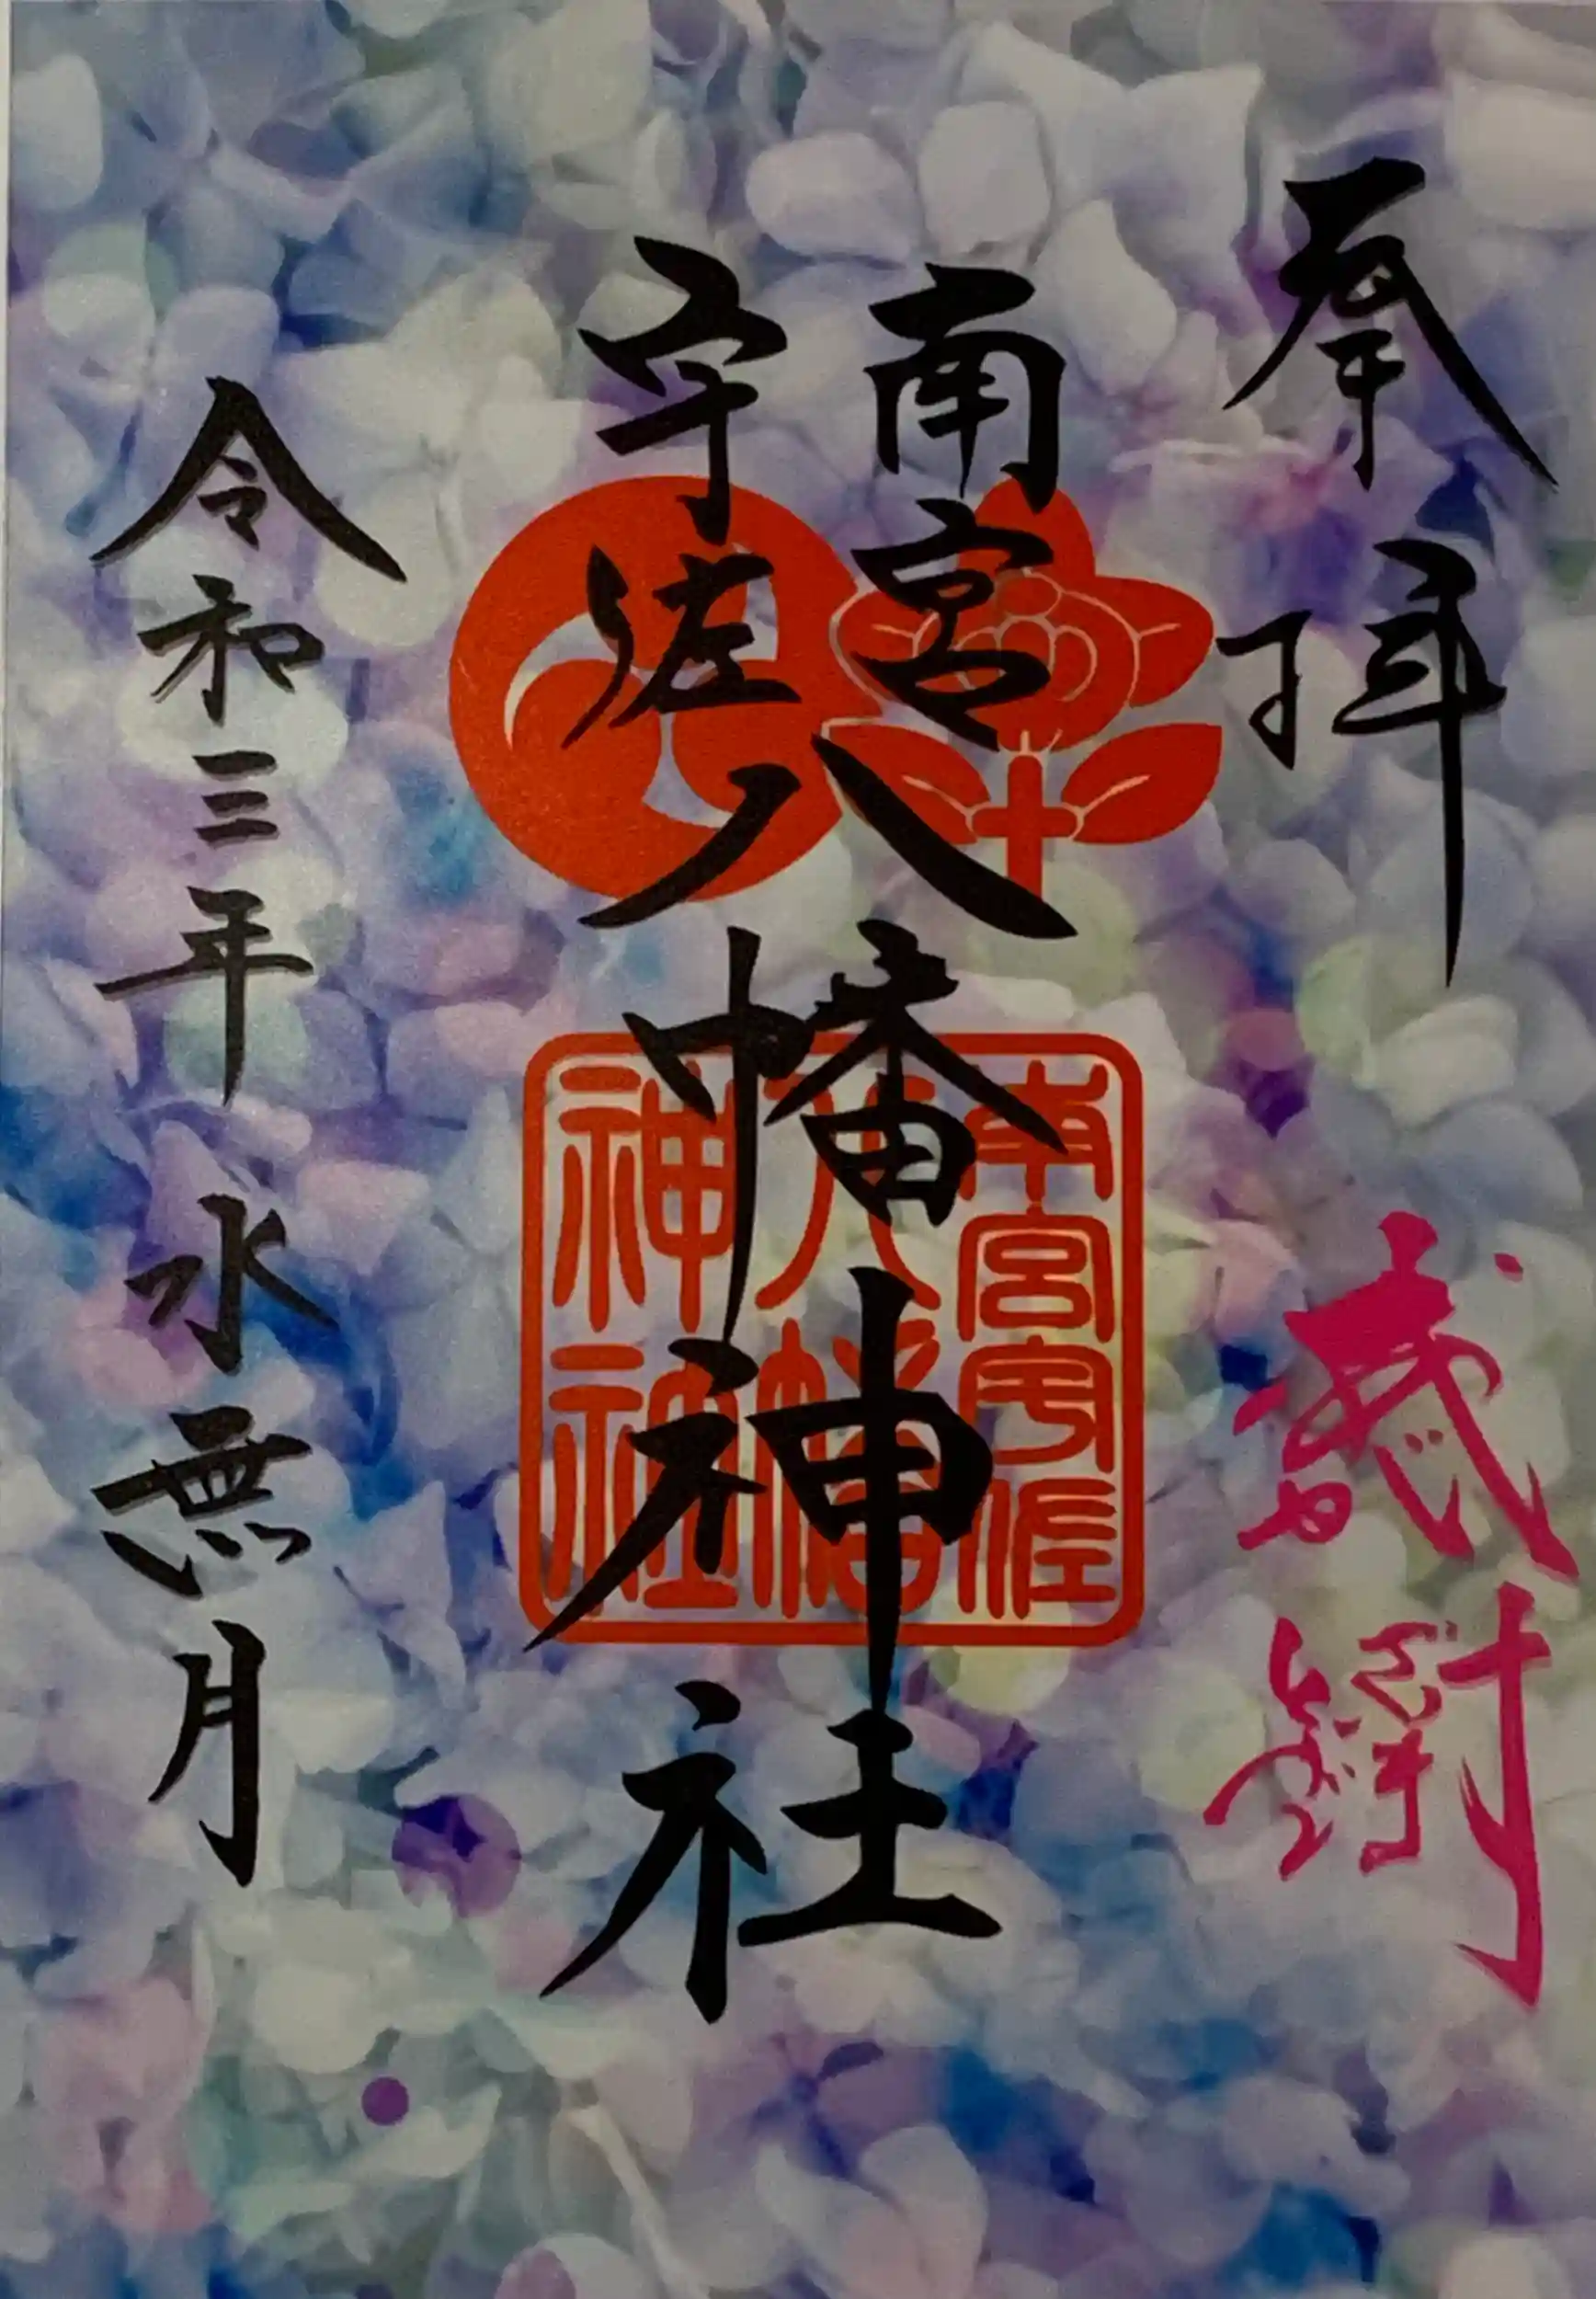 奉拝
南宮
宇佐
八幡神社
令和三年水無月
南宮宇佐
八幡
神社